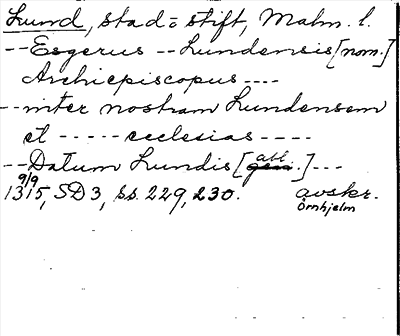 Lund, stad o. stift, Malm. l.
-- Esgerus -- Lundensis [nom.]
Archiepiscopus ----
-- inter nostram Lundensem
et ----- ecclesias ----
-- Datum Lundis [gen. abl.] ---
9/9
1315, SD 3, ss. 229, 230. avskr.
Örnhjelm